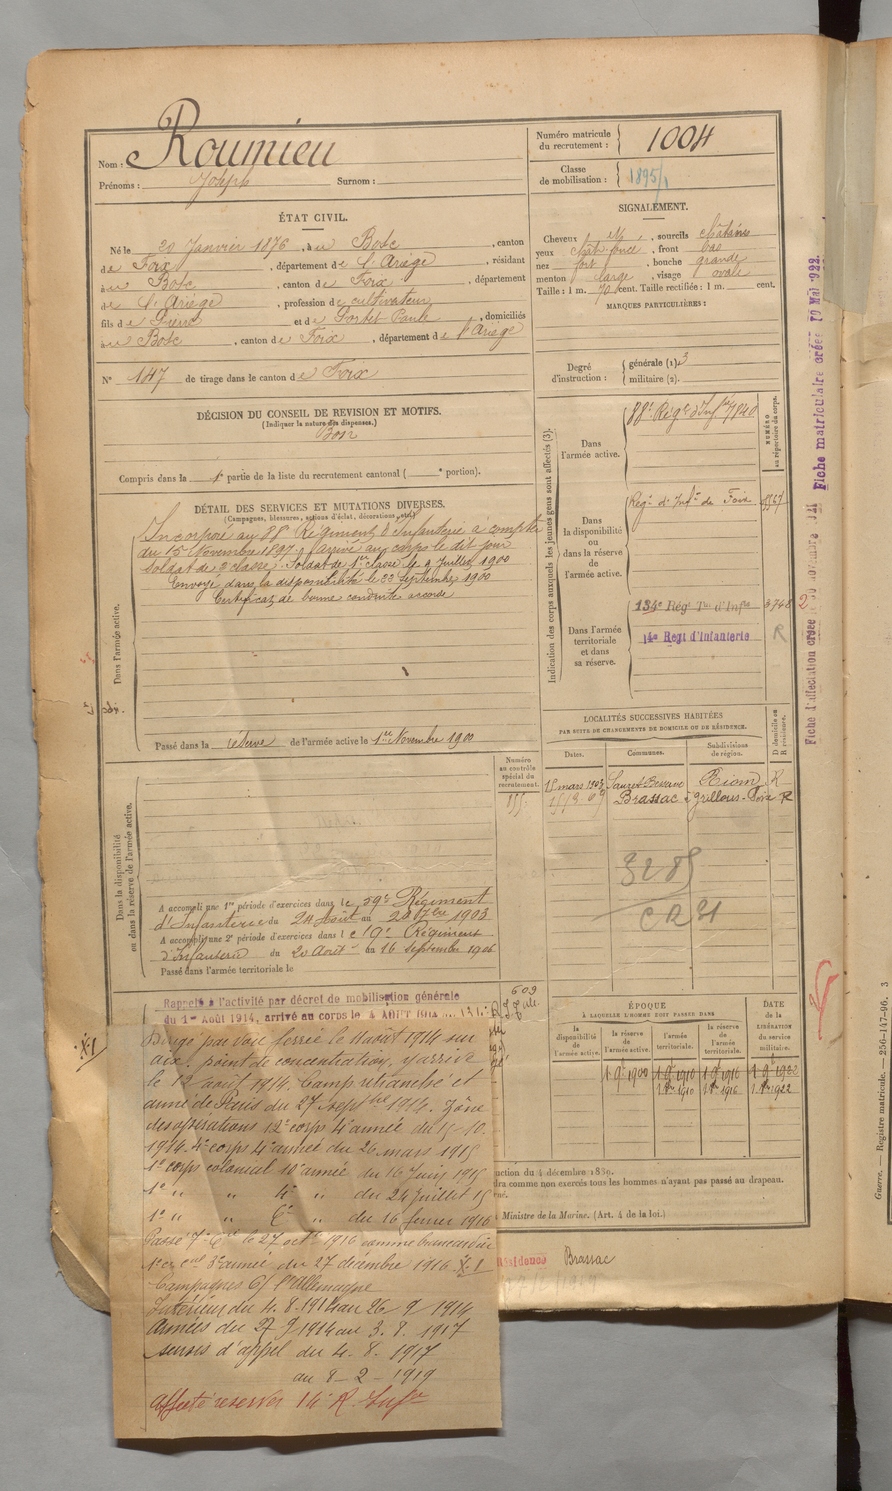 Nom : Roumieu
Prénoms : Joseph Surnom :
Numéro matricule du recrutement : 1004
Classe de mobilisation : 1895/1
ÉTAT CIVIL.
Né le 20 Janvier 1876, à au Bosc, canton
de Foix, département de l'Ariège, résidant
à au Bosc, canton de Foix, département
de l'Ariège, profession de cultivateur
fils de Pierre et de Portet Paule, domiciliés
à au Bosc, canton de Foix, département de l'Ariège
N° 147 de tirage dans le canton de Foix
SIGNALEMENT.
Cheveux et, sourcils châtains
yeux chât. foncé, front bas
nez fort, bouche grande
menton large, visage ovale
Taille : 1 m. 70 cent. Taille rectifiée : 1 m. cent.
MARQUES PARTICULIÈRES :
Degré d'instruction : générale (1) 3
militaire (2).
DÉCISION DU CONSEIL DE REVISION ET MOTIFS.
(Indiquer la nature des dispenses.)
Bon
Compris dans la 1e partie de la liste du recrutement cantonal ( e portion).
DÉTAIL DES SERVICES ET MUTATIONS DIVERSES.
(Campagnes, blessures, actions d'éclat, décorations, etc.)
Dans l'armée active.
Incorporé au 88e Régiment d'Infanterie à compter
du 15 Novembre 1897, arrivé au corps le dit jour
soldat de 2e classe. Soldat de 1re classe le 9 Juillet 1900
Envoyé dans la disponibilité le 22 septembre 1900
Certificat de bonne conduite accordé
Passé dans la réserve de l'armée active le 1er Novembre 1900
Indication des corps auxquels les jeunes gens sont affectés (3).
NUMÉRO au répertoire du corps.
Dans l'armée active.
88e Régt d'Infie 7840
Dans la disponibilité ou dans la réserve de l'armée active.
Régt d'Infie de Foix
Dans l'armée territoriale et dans sa réserve.
134e Régt Tal d'Infie 3748
14e Regt d'Infanterie R
Fiche matriculaire créée 10 Mai 1922
LOCALITÉS SUCCESSIVES HABITÉES
PAR SUITE DE CHANGEMENTS DE DOMICILE OU DE RÉSIDENCE.
Dates. Communes. Subdivisions de région. D domicile ou R résidence.
15 mars 1903 Sauret-Besserve Riom R
Brassac Grillous - Foix R
3285
CR 21
Numéro au contrôle spécial du recrutement.
Dans la disponibilité ou dans la réserve de l'armée active.
A accompli une 1re période d'exercices dans le 59e Régiment
d'Infanterie du 24 Août au 20 7bre 1903
A accompli une 2e période d'exercices dans le 9e Régiment
d'Infanterie du 20 Août au 16 septembre 1906
Passé dans l'armée territoriale le
609
Rappelé à l'activité par décret de mobilisation générale
du 1er Août 1914, arrivé au corps le 4 AOUT
X-1
Dirigé par voie ferrée le 11 août 1914 sur
aix. point de concentration, y arrive
le 12 août 1914. Camp retranché et
armé de Paris du 27 septbre 1914. Zône
des opérations 12e corps 4e année du 15-10.
1914. 4e corps 4e armée du 26 mars 1915
1e corps colonial 10e année du 16 Juin 1915
1e " " 4e " du 24 Juillet 15
1e " " 6e " du 16 fevrier 1916
Passé 7e le 27 octe 1916 comme brancardier
1e 3e armée du 27 décembre 1916. X-1
Campagnes C/ l'Allemagne
Intérieur du 4. 8. 1914 au 26 9 1914
Armées du 27 9 1914 au 3. 8. 1917
sursis d'appel du 4. 8. 1917
au 8-2-1919
Affecté reserves 14e R. Infie
ÉPOQUE
À LAQUELLE L'HOMME DOIT PASSER DANS
DATE de la LIBÉRATION du service militaire.
la disponibilité de l'armée active. la réserve de l'armée active. l'armée territoriale. la réserve de l'armée territoriale.
1 9bre 1900 1 9bre 1910 1 9bre 1916 1 9bre 1922
1 8bre 1910 1 8bre 1916 1 8bre 1922
uction du 4 décembre 1889.
dra comme non exercés tous les hommes n'ayant pas passé au drapeau.
Ministre de la Marine. (Art. 4 de la loi.)
Résidence Brassac
Guerre. — Registre matricule. — 256-147-96. 3